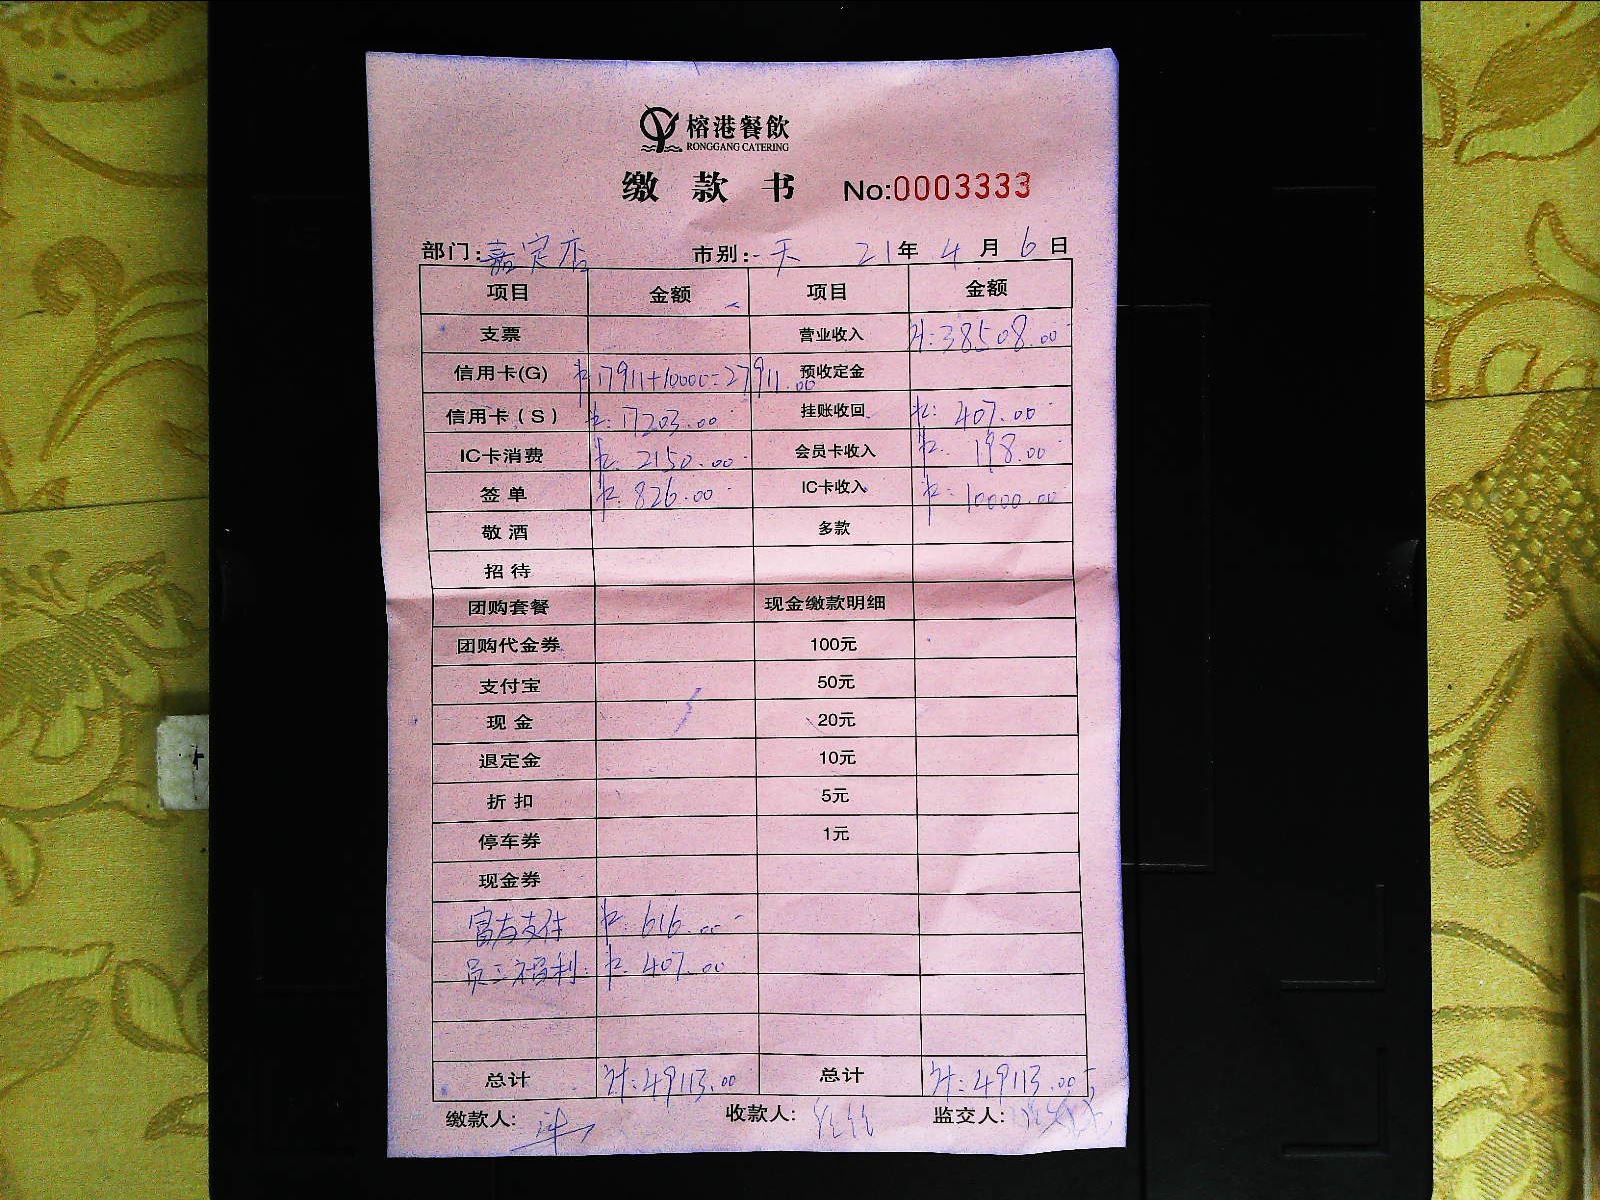 榕港餐飲
RONGGANG CATERING
缴款书 No:0003333
部门:嘉定店 市别:一天 21年4月6日
项目 金额 项目 金额
支票 营业收入 计:38508.00
信用卡(G) 17911+10000=27911.00 预收定金
信用卡(S) 17203.00 挂账收回 407.00
IC卡消费 2150.00 会员卡收入 198.00
签单 826.00 IC卡收入 10000.00
敬酒 多款
招待
团购套餐 现金缴款明细
团购代金券 100元
支付宝 50元
现金 20元
退定金 10元
折扣 5元
停车券 1元
现金券
富友支付 616.00
员工福利: 407.00
总计 计:49113.00 总计 计:49113.00
缴款人: 收款人: 监交人: